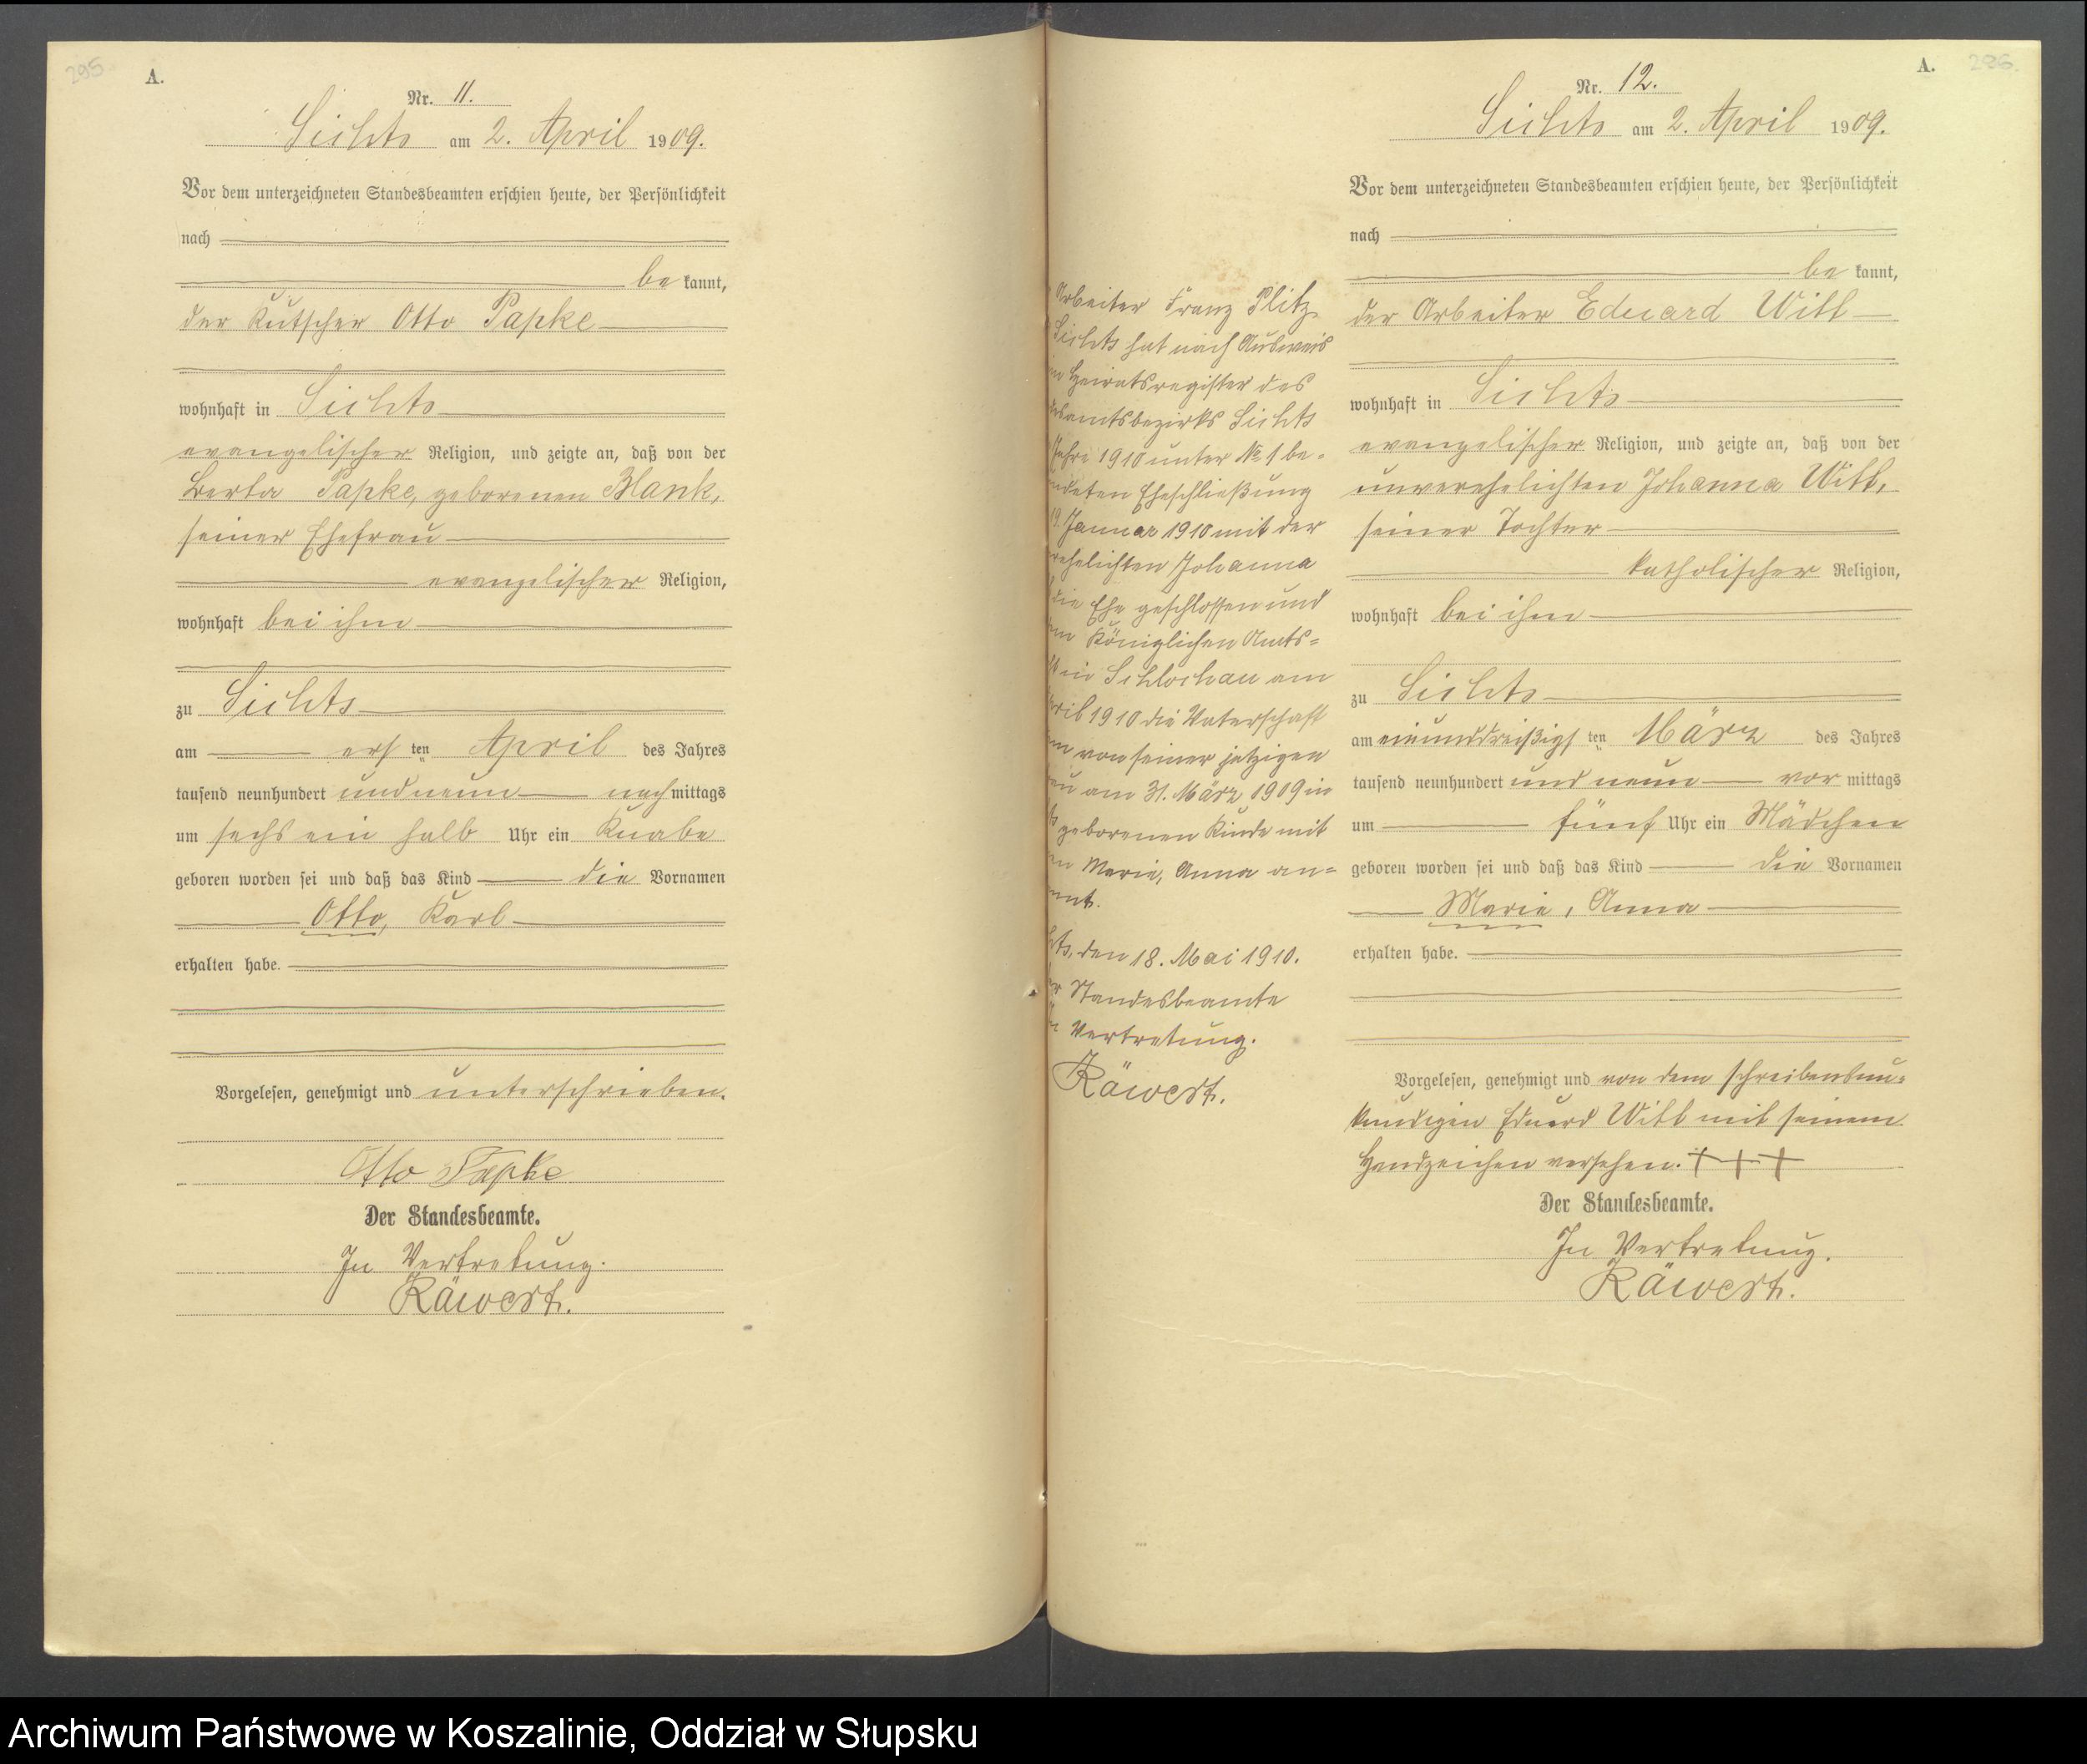 295
A.
Nr. 11.
Sichts am 2. April 1909.
Vor dem unterzeichneten Standesbeamten erschien heute, der Persönlichkeit
nach
be kannt,
der Kutscher Otto Papke
wohnhaft in Sichts
evangelischer Religion, und zeigte an, daß von der
Berta Papke, geborenen Blank,
seiner Ehefrau
evangelischer Religion,
wohnhaft bei ihm
zu Sichts
am ersten April des Jahres
tausend neunhundert und neun nachmittags
um sechs ein halb Uhr ein Knabe
geboren worden sei und daß das Kind die Vornamen
Otto, Karl
erhalten habe.
Vorgelesen, genehmigt und unterschrieben.
Otto Papke
Der Standesbeamte.
In Vertretung.
Räwert.
Arbeiter Franz Plitz,
Sichts hat nach Ausweis
Heiratsregister des
amtsbezirks Sichts
Jahre 1910 unter No 1 be-
deten Eheschließung
Januar 1910 mit der
ehelichten Johanna
die Ehe geschlossen und
Königlichen Amts-
in Schlochau am
ril 1910 die Vaterschaft
von seiner jetzigen
am 31. März 1909 in
geborenen Kinde mit
Marie, Anna an-
nt.
ts, den 18. Mai 1910.
Standesbeamte
Vertretung.
Räwert.
A.
296.
Nr. 12.
Sichts am 2. April 1909.
Vor dem unterzeichneten Standesbeamten erschien heute, der Persönlichkeit
nach
be kannt,
der Arbeiter Eduard Witt
wohnhaft in Sichts
evangelischer Religion, und zeigte an, daß von der
unverehelichten Johanna Witt,
seiner Tochter
katholischer Religion,
wohnhaft bei ihm
zu Sichts
am einunddreißigsten März des Jahres
tausend neunhundert und neun vor mittags
um fünf Uhr ein Mädchen
geboren worden sei und daß das Kind die Vornamen
Marie, Anna
erhalten habe.
Vorgelesen, genehmigt und von dem schreibensun-
kundigen Eduard Witt mit seinem
Handzeichen versehen. +++
Der Standesbeamte.
In Vertretung.
Räwert.
Archiwum Państwowe w Koszalinie, Oddział w Słupsku